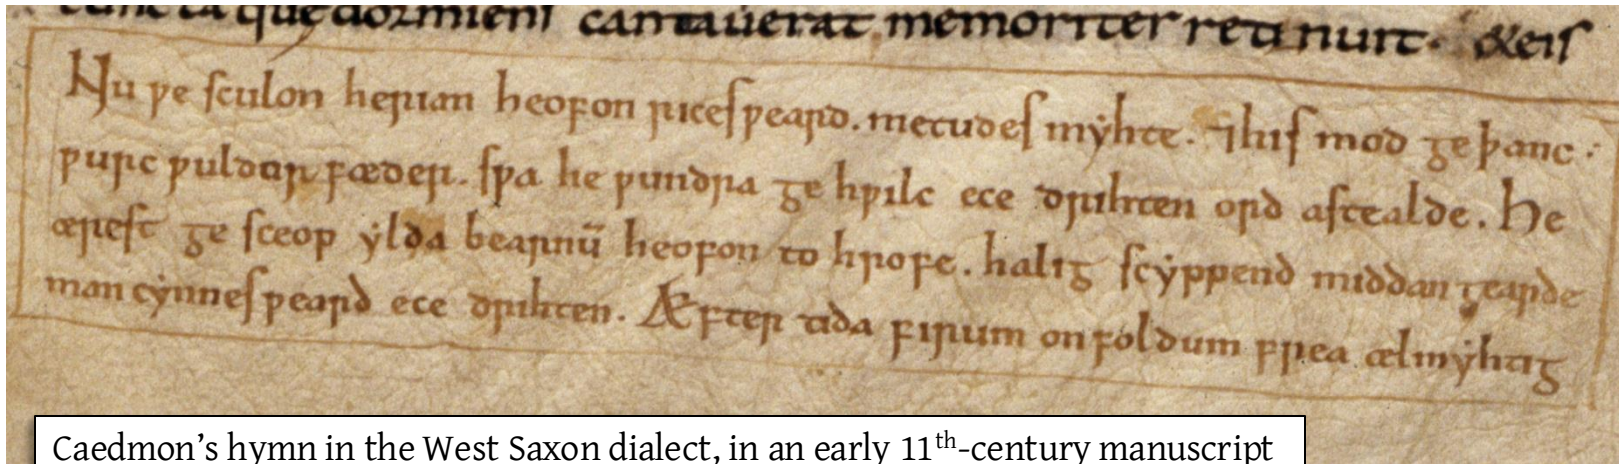 cuncta que dormiens cantauerat memoriter retinuit· & eis
Nu ƿe ſculon herian heofon riceſ ƿeard. metudeſ mẏhte. ⁊ hiſ mod ge þanc .
ƿurc ƿuldor fæder. ſƿa he ƿundra ge hƿilc ece drihten ord aſtealde. He
æreſt ge ſceop ẏlda bearnū heofon to hrofe. halig ſcẏppend middan gearde
man cẏnneſ ƿeard ece drihten. Æfter tida firum on foldum frea ælmẏhtig
Caedmon’s hymn in the West Saxon dialect, in an early 11th-century manuscript